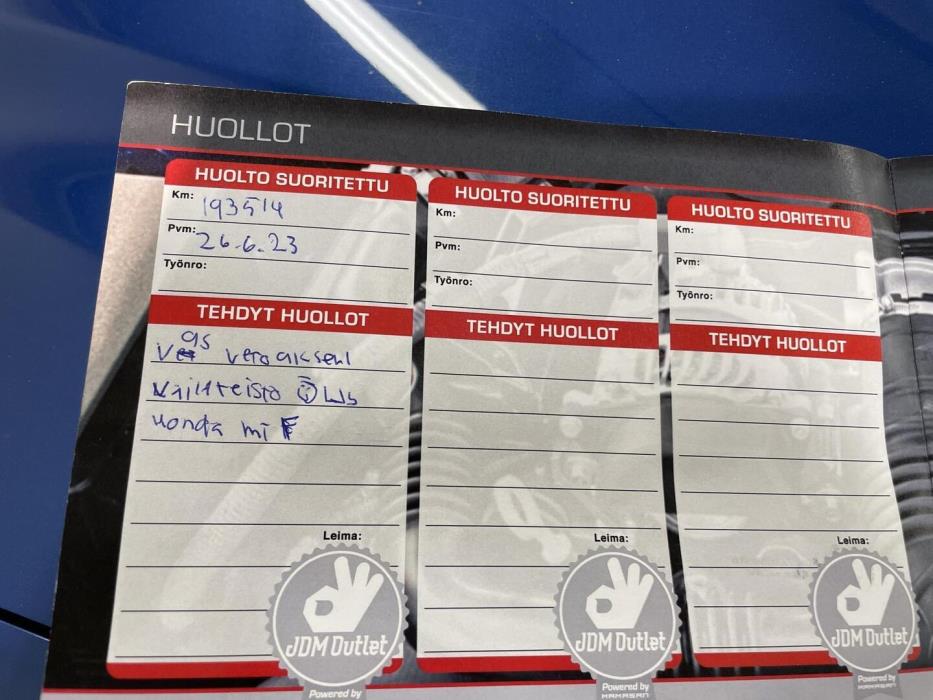 HUOLLOT
HUOLTO SUORITETTU
Km: 193514
Pvm: 26.6.23
Työnro:
TEHDYT HUOLLOT
Honda
Leima:
JDM Outlet
Powered by
HUOLTO SUORITETTU
Km:
Pvm:
Työnro:
TEHDYT HUOLLOT
Leima:
JDM Outlet
Powered by
MAMASAN
HUOLTO SUORITETTU
Km:
Pvm:
Työnro:
TEHDYT HUOLLOT
Leima:
JDM Outlet
Powered by
MAMASAN